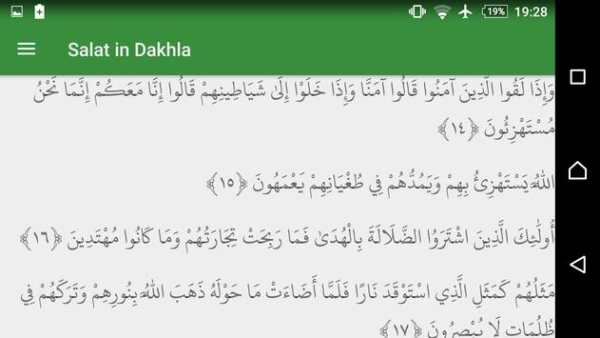 19% 19:28
Salat in Dakhla
وَإِذَا لَقُوا الَّذِينَ آمَنُوا قَالُوا آمَنَّا وَإِذَا خَلَوْا إِلَىٰ شَيَاطِينِهِمْ قَالُوا إِنَّا مَعَكُمْ إِنَّمَا نَحْنُ
مُسْتَهْزِئُونَ ﴿١٤﴾
اللَّهُ يَسْتَهْزِئُ بِهِمْ وَيَمُدُّهُمْ فِي طُغْيَانِهِمْ يَعْمَهُونَ ﴿١٥﴾
أُولَٰئِكَ الَّذِينَ اشْتَرَوُا الضَّلَالَةَ بِالْهُدَىٰ فَمَا رَبِحَتْ تِجَارَتُهُمْ وَمَا كَانُوا مُهْتَدِينَ ﴿١٦﴾
مَثَلُهُمْ كَمَثَلِ الَّذِي اسْتَوْقَدَ نَارًا فَلَمَّا أَضَاءَتْ مَا حَوْلَهُ ذَهَبَ اللَّهُ بِنُورِهِمْ وَتَرَكَهُمْ فِي
ظُلُمَاتٍ لَا يُبْصِرُونَ ﴿١٧﴾